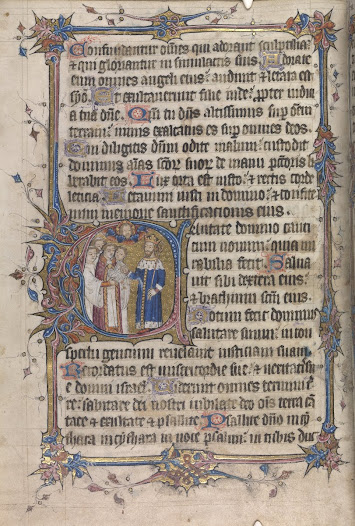 Confundantur omnes qui adorant sculptilia:
& qui gloriantur in simulacris suis. Adorate
eum omnes angeli eius: audiuit & letata est
syon. Et exultauerunt filie iude: propter iudici
a tua dñe. Qm̃ tu dominus altissimus sup̱ om̃em
terram: nimis exaltatus es sup̱ omnes deos.
Qui diligitis dñm odite malum: custodit
dominus aĩas scõr suor de manu pctõris li
berabit eos. Lux orta est iusto: & rectis corde
leticia. Letamini iusti in domino: & confite
mini memorie sanctificationis eius.
Cantate domino canti
cum nouum: quia mi
rabilia fecit. Salua
uit sibi dextera eius:
& brachium scm̃ eius.
Notum fecit dominus
salutare suum: in con
spectu gentium reuelauit iusticiam suam.
Recordatus est misericordie sue: & ueritatis su
e domui israel. Uiderunt omnes termini t̃
re: salutare dei nostri. Iubilate deo oĩs terra: can
tate & exultate & psallite. Psallite dño in cy
thara in cythara & uoce psalmi: in tubis duc